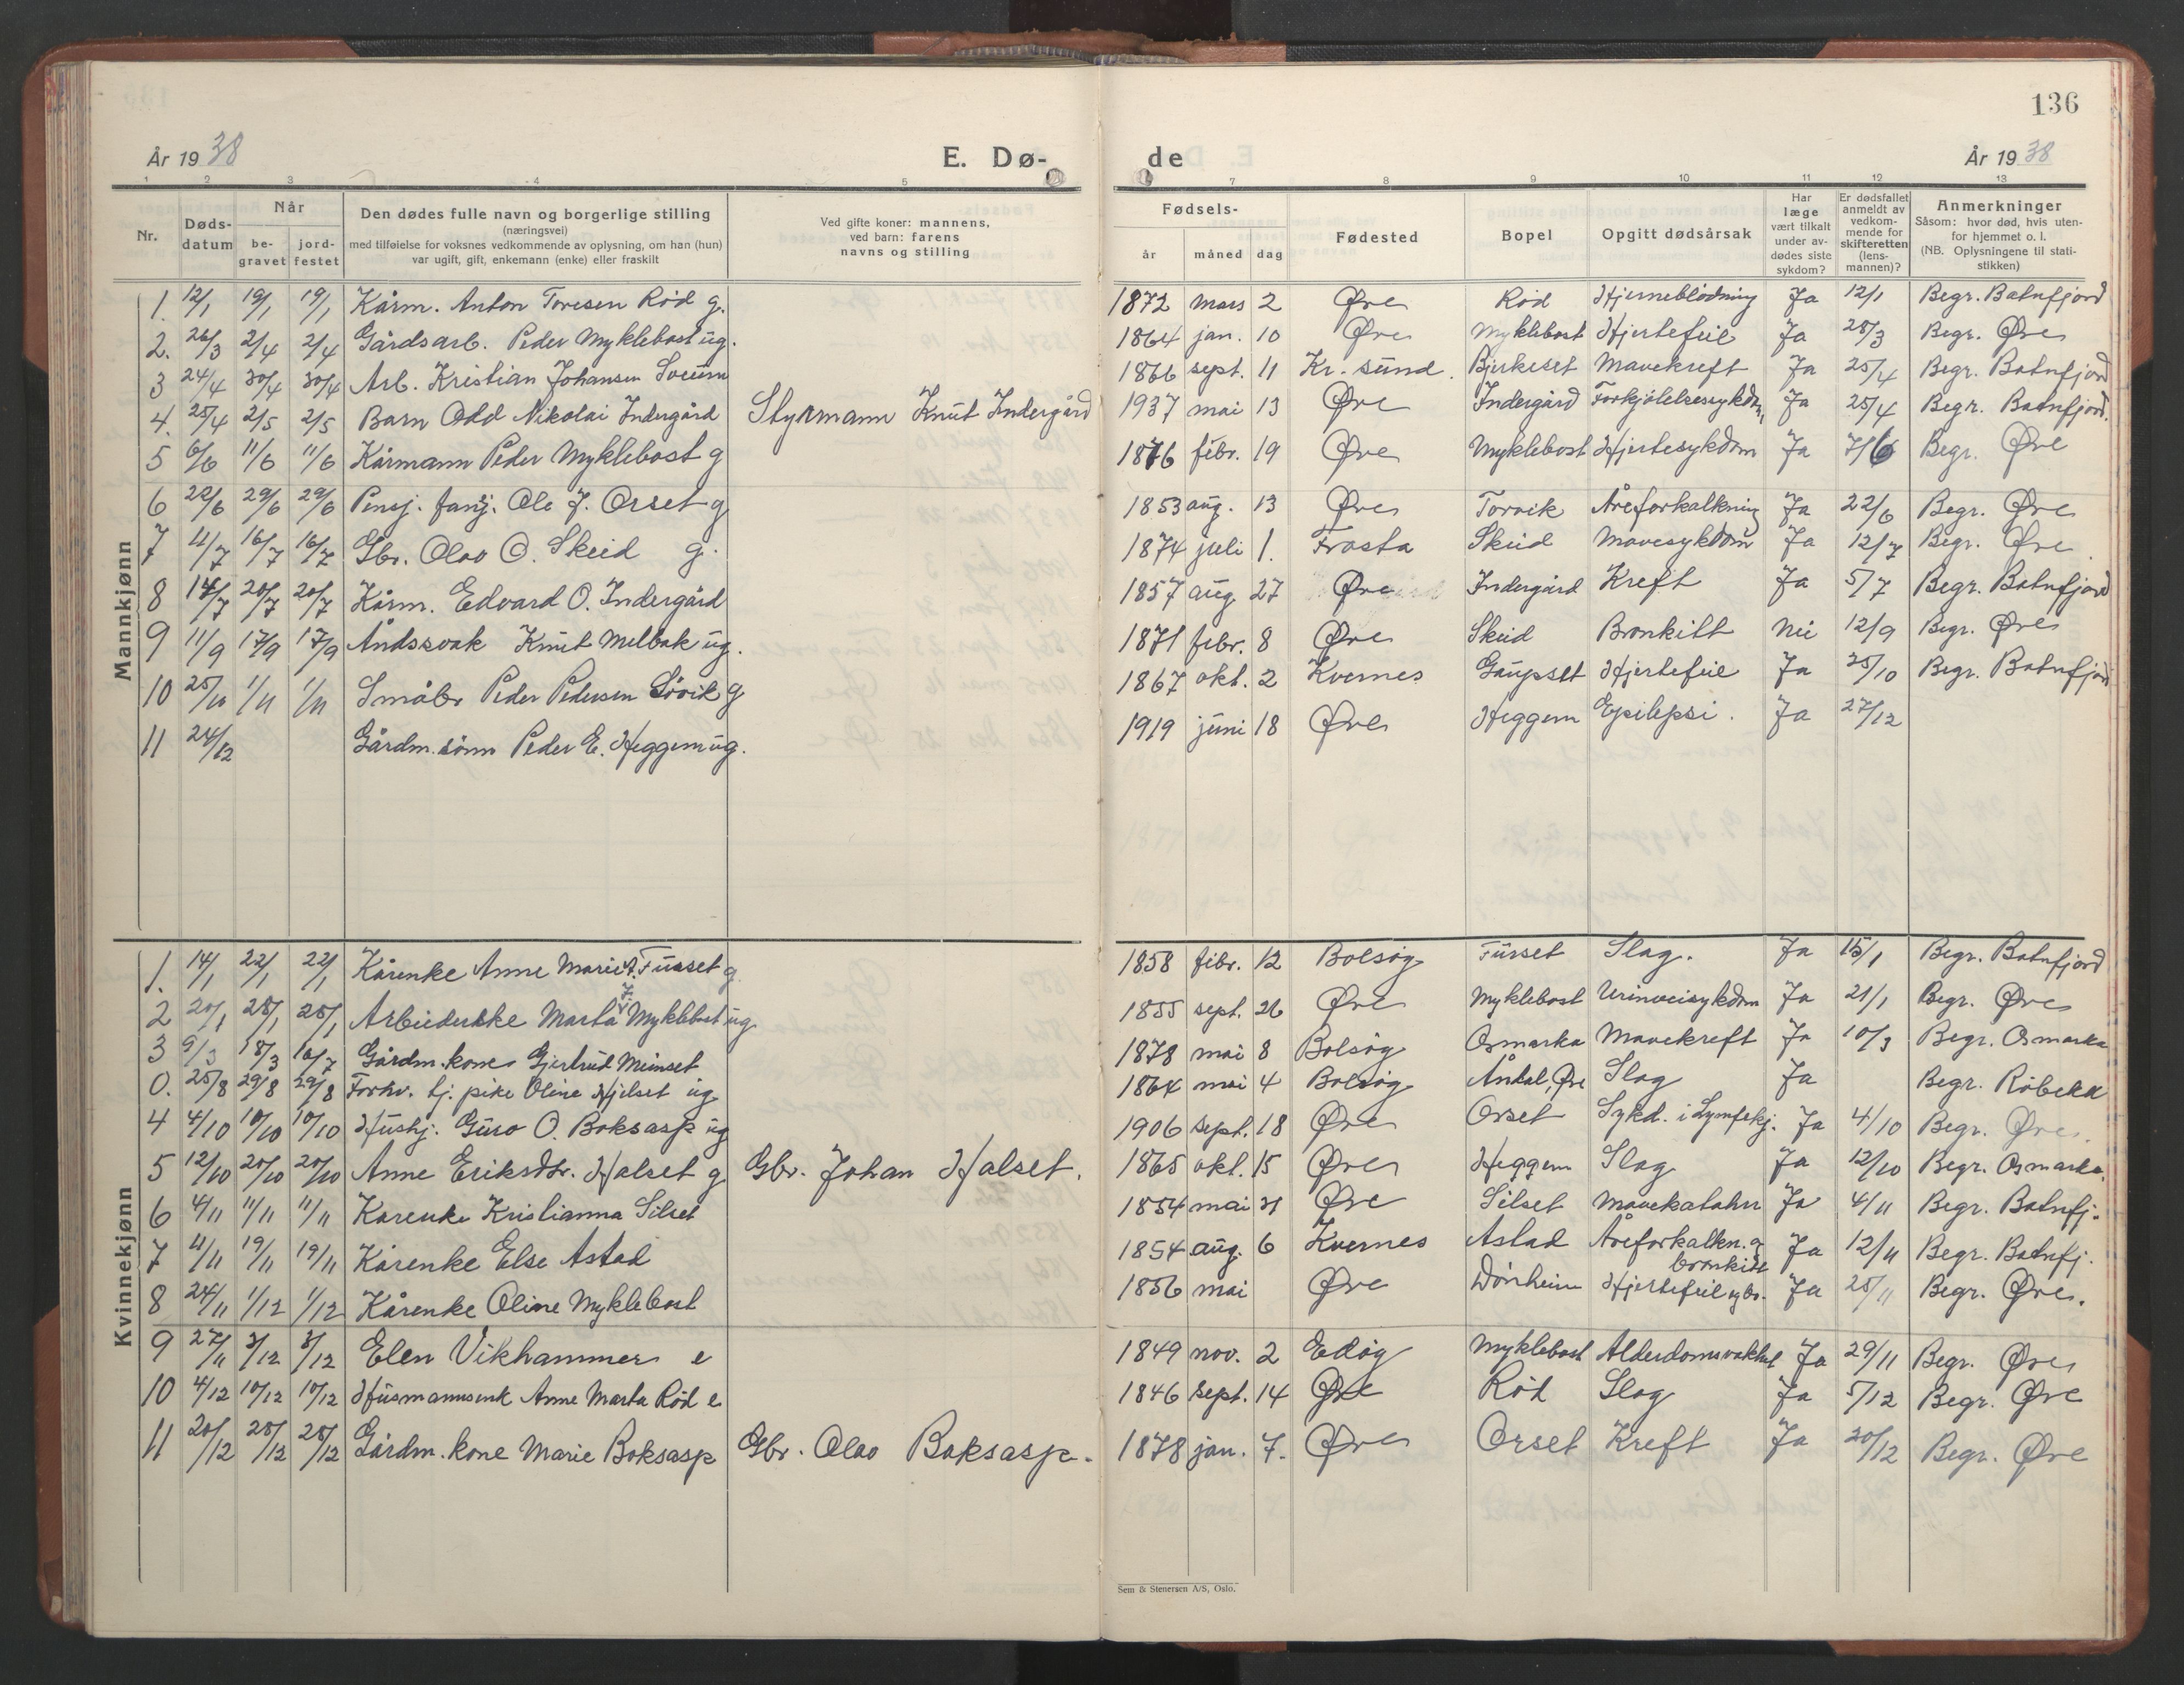 136
År 19 38 E. Dø- de År 19 38
1 2 3 4 5 7 8 9 10 11 12 13
Nr. Døds- datum Når be- gravet jord- festet Den dødes fulle navn og borgerlige stilling (næringsvei) med tilføielse for voksnes vedkommende av oplysning, om han (hun) var ugift, gift, enkemann (enke) eller fraskilt Ved gifte koner: mannens, ved barn: farens navns og stilling Fødsels- år måned dag Fødested Bopel Opgitt dødsårsak Har læge vært tilkalt under av- dødes siste sykdom? Er dødsfallet anmeldt av vedkom- mende for skifteretten (lens- mannen)? Anmerkninger Såsom: hvor død, hvis uten- for hjemmet o. l. (NB. Oplysningene til stati- stikken)
Mannkjønn
1. 12/1 19/1 19/1 Kårm. Anton Toresen Rød g. 1872 mars 2 Øre Rød Hjerneblødning Ja 12/1 Begr. Batnfjord
2. 26/3 2/4 2/4 Gårdsarb. Peder Myklebost ug. 1864 jan. 10 Øre Myklebost Hjertefeil Ja 28/3 Begr. Øre
3 24/4 30/4 30/4 Arb. Kristian Johansen Sveum 1866 sept. 11 Kr. sund. Bjerkeset Mavekreft Ja 25/4 Begr. Batnfjord
4. 25/4 2/5 2/5 Barn Odd Nikolai Indergård Styrmann Knut Indergård 1937 mai 13 Øre Indergård Forkjølelsessykdm, Ja 25/4 Begr. Batnfjord.
5 6/6 11/6 11/6 Kårmann Peder Myklebost g 1876 febr. 19 Øre Myklebost Hjertesykdom Ja 7/6 Begr. Øre
6 22/6 29/6 29/6 Pensj. fanj. Ole J. Orset g 1853 aug. 13 Øre Torvik Åreforkalkning Ja 22/6 Begr. Øre
7 11/7 16/7 16/7 Gbr. Olav O. Skeid g. 1874 juli 1. Frosta Skeid Mavesykdom Ja 12/7 Begr. Øre.
8 14/7 20/7 20/7 Kårm. Edvard O. Indergård 1857 aug 27 Øre Indergård Kreft Ja 5/7 Begr. Batnfjord
9 11/9 17/9 17/9 Åndssvak Knut Melbak ug. 1871 febr. 8 Øre Skeid Bronkitt Nei 12/9 Begr. Øre
10 25/10 1/11 1/11 Småbr Peder Pedersen Søvik g 1867 okt. 2 Kvernes Gaupset Hjertefeil Ja 25/10 Begr. Batnfjord
11 24/12 Gårdm.sønn Peder E. Heggem ug. 1919 juni 18 Øre Heggem Epilepsi. Ja 27/12
Kvinnekjønn
1. 14/1 22/1 22/1 Kårenke Anne Marie Furset g 1858 febr. 12 Bolsøy Furset Slag. Ja 15/1 Begr. Batnfjord
2 20/1 28/1 28/1 Arbeiderske Marta J. Myklebost ug 1855 sept. 26 Øre Myklebost Urinveisykdom Ja 21/1 Begr. Øre
3 9/3 18/3 16/7 Gårdm.kone Gjertrud Meinset 1878 mai 8 Bolsøy Osmarka Mavekreft Ja 10/3 Begr. Osmarka
0. 25/8 29/8 29/8 Forhv. tj. pike Oline Hjelset ug 1864 mai 4 Bolsøy Åndal, Øre Slag Ja Begr. Røbekk
4 4/10 10/10 10/10 Hushj. Guro O. Boksasp ug 1906 sept. 18 Øre Orset Sykd. i Lymfekj. Ja 4/10 Begr. Øre.
5 12/10 20/10 20/10 Anne Eriksdtr. Halset g Gbr. Johan Halset. 1865 okt. 15 Øre Heggem Slag Ja 12/10 Begr. Osmarka.
6 4/11 11/11 11/11 Kårenke Kristianna Silset 1854 mai 31 Øre Silset Mavekatahr Ja 4/11 Begr. Batnfj.
7 11/11 19/11 19/11 Kårenke Else Astad 1854 aug. 6 Kvernes Astad Åreforkalkn. og bronkitt Ja 12/11 Begr. Batnfj.
8 24/11 1/12 1/12 Kårenke Oline Myklebost 1856 mai Øre Dønheim Hjertefeil Ja 25/11 Begr. Øre.
9 27/11 3/12 3/12 Elen Vikhammer e 1849 nov. 2 Edøy Myklebost Alderdomsvakhet Ja 29/11 Begr. Øre
10 4/12 10/12 10/12 Husmannsenk Anne Marta Rød e 1846 sept. 14 Øre Rød Slag Ja 5/12 Begr. Øre
11 20/12 28/12 28/12 Gårdm.kone Marie Boksasp Gbr. Olav Boksasp. 1878 jan. 7. Øre Orset Kreft Ja 20/12 Begr. Øre
Sem & Stenersen A/S, Oslo.